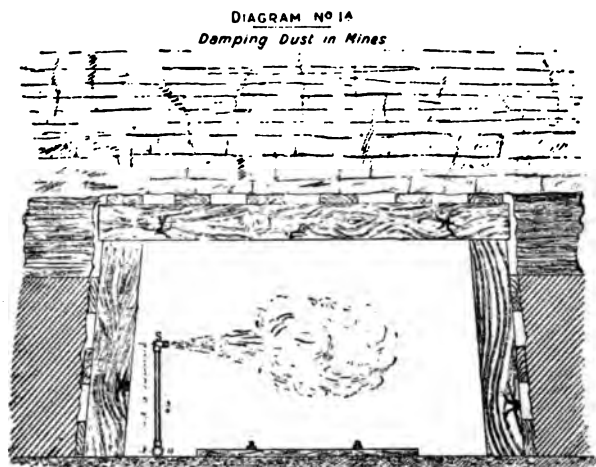 DIAGRAM Nº 1A
Damping Dust in Mines